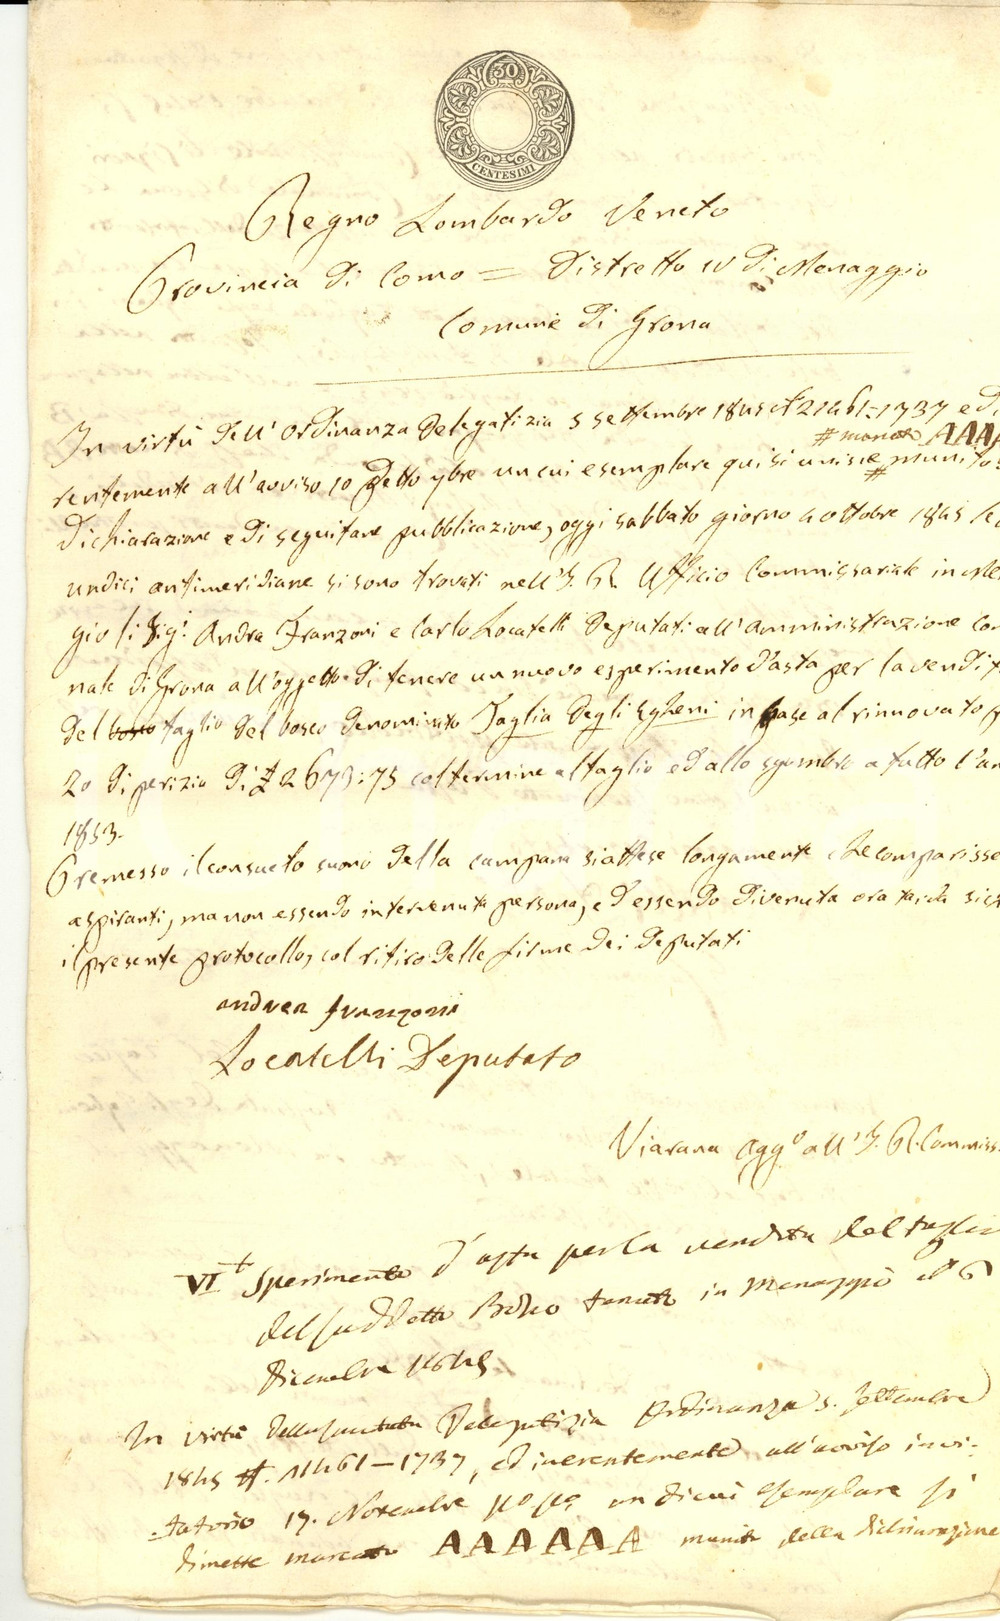 30
CENTESIMI
Regno Lombardo Veneto
Provincia di Como = Distretto IV di Menaggio
Comune di Grona
In virtù dell' Ordinanza Delegatizia 5 settembre 1845 N° 21461=1737 ed
# marcato AAAA
rentemente all'avviso 10 detto 9bre un cui esemplare qui si unisce # munito
dichiarazione e di seguitane pubblicazione, oggi sabbato giorno 4 ottobre 1845 le
undici antimeridiane si sono trovati nell' I. R. Ufficio Commissariale in Me
gio li Sigi. Andrea Franzoni e Carlo Locatelli Deputati all'amministrazione Com
nale di Grona all'oggetto di tenere un nuovo esperimento d'asta per la vendita
del bosco taglio del bosco denominato Taglia degli Sgheni in base al rinnovato p
zo di perizia di £ 2673:75 col termine al taglio ed allo sgombro a tutto l'an
1853.
Premesso il consueto suono della campana si attese longamente che comparisse
aspiranti, ma non essendo intervenuta persona, ed essendo divenuta ora tarda si
il presente protocollo, col ritiro delle firme dei deputati
andrea franzoni
Locatelli Deputato
Viarana Aggo all' I. R. Commiss.
VI t Sperimento d'asta per la vendita del taglio
del suddetto Bosco tenuto in Menaggio il 6
Dicembre 1845
In virtù della Delegatizia Ordinanza 5. Settembre
1845 N. 21461-1737, ed inerentemente all'avviso invi-
-tatorio 17. Novembre un di cui esemplare si
dimette marcato AAAAAA munito della dichiarazione